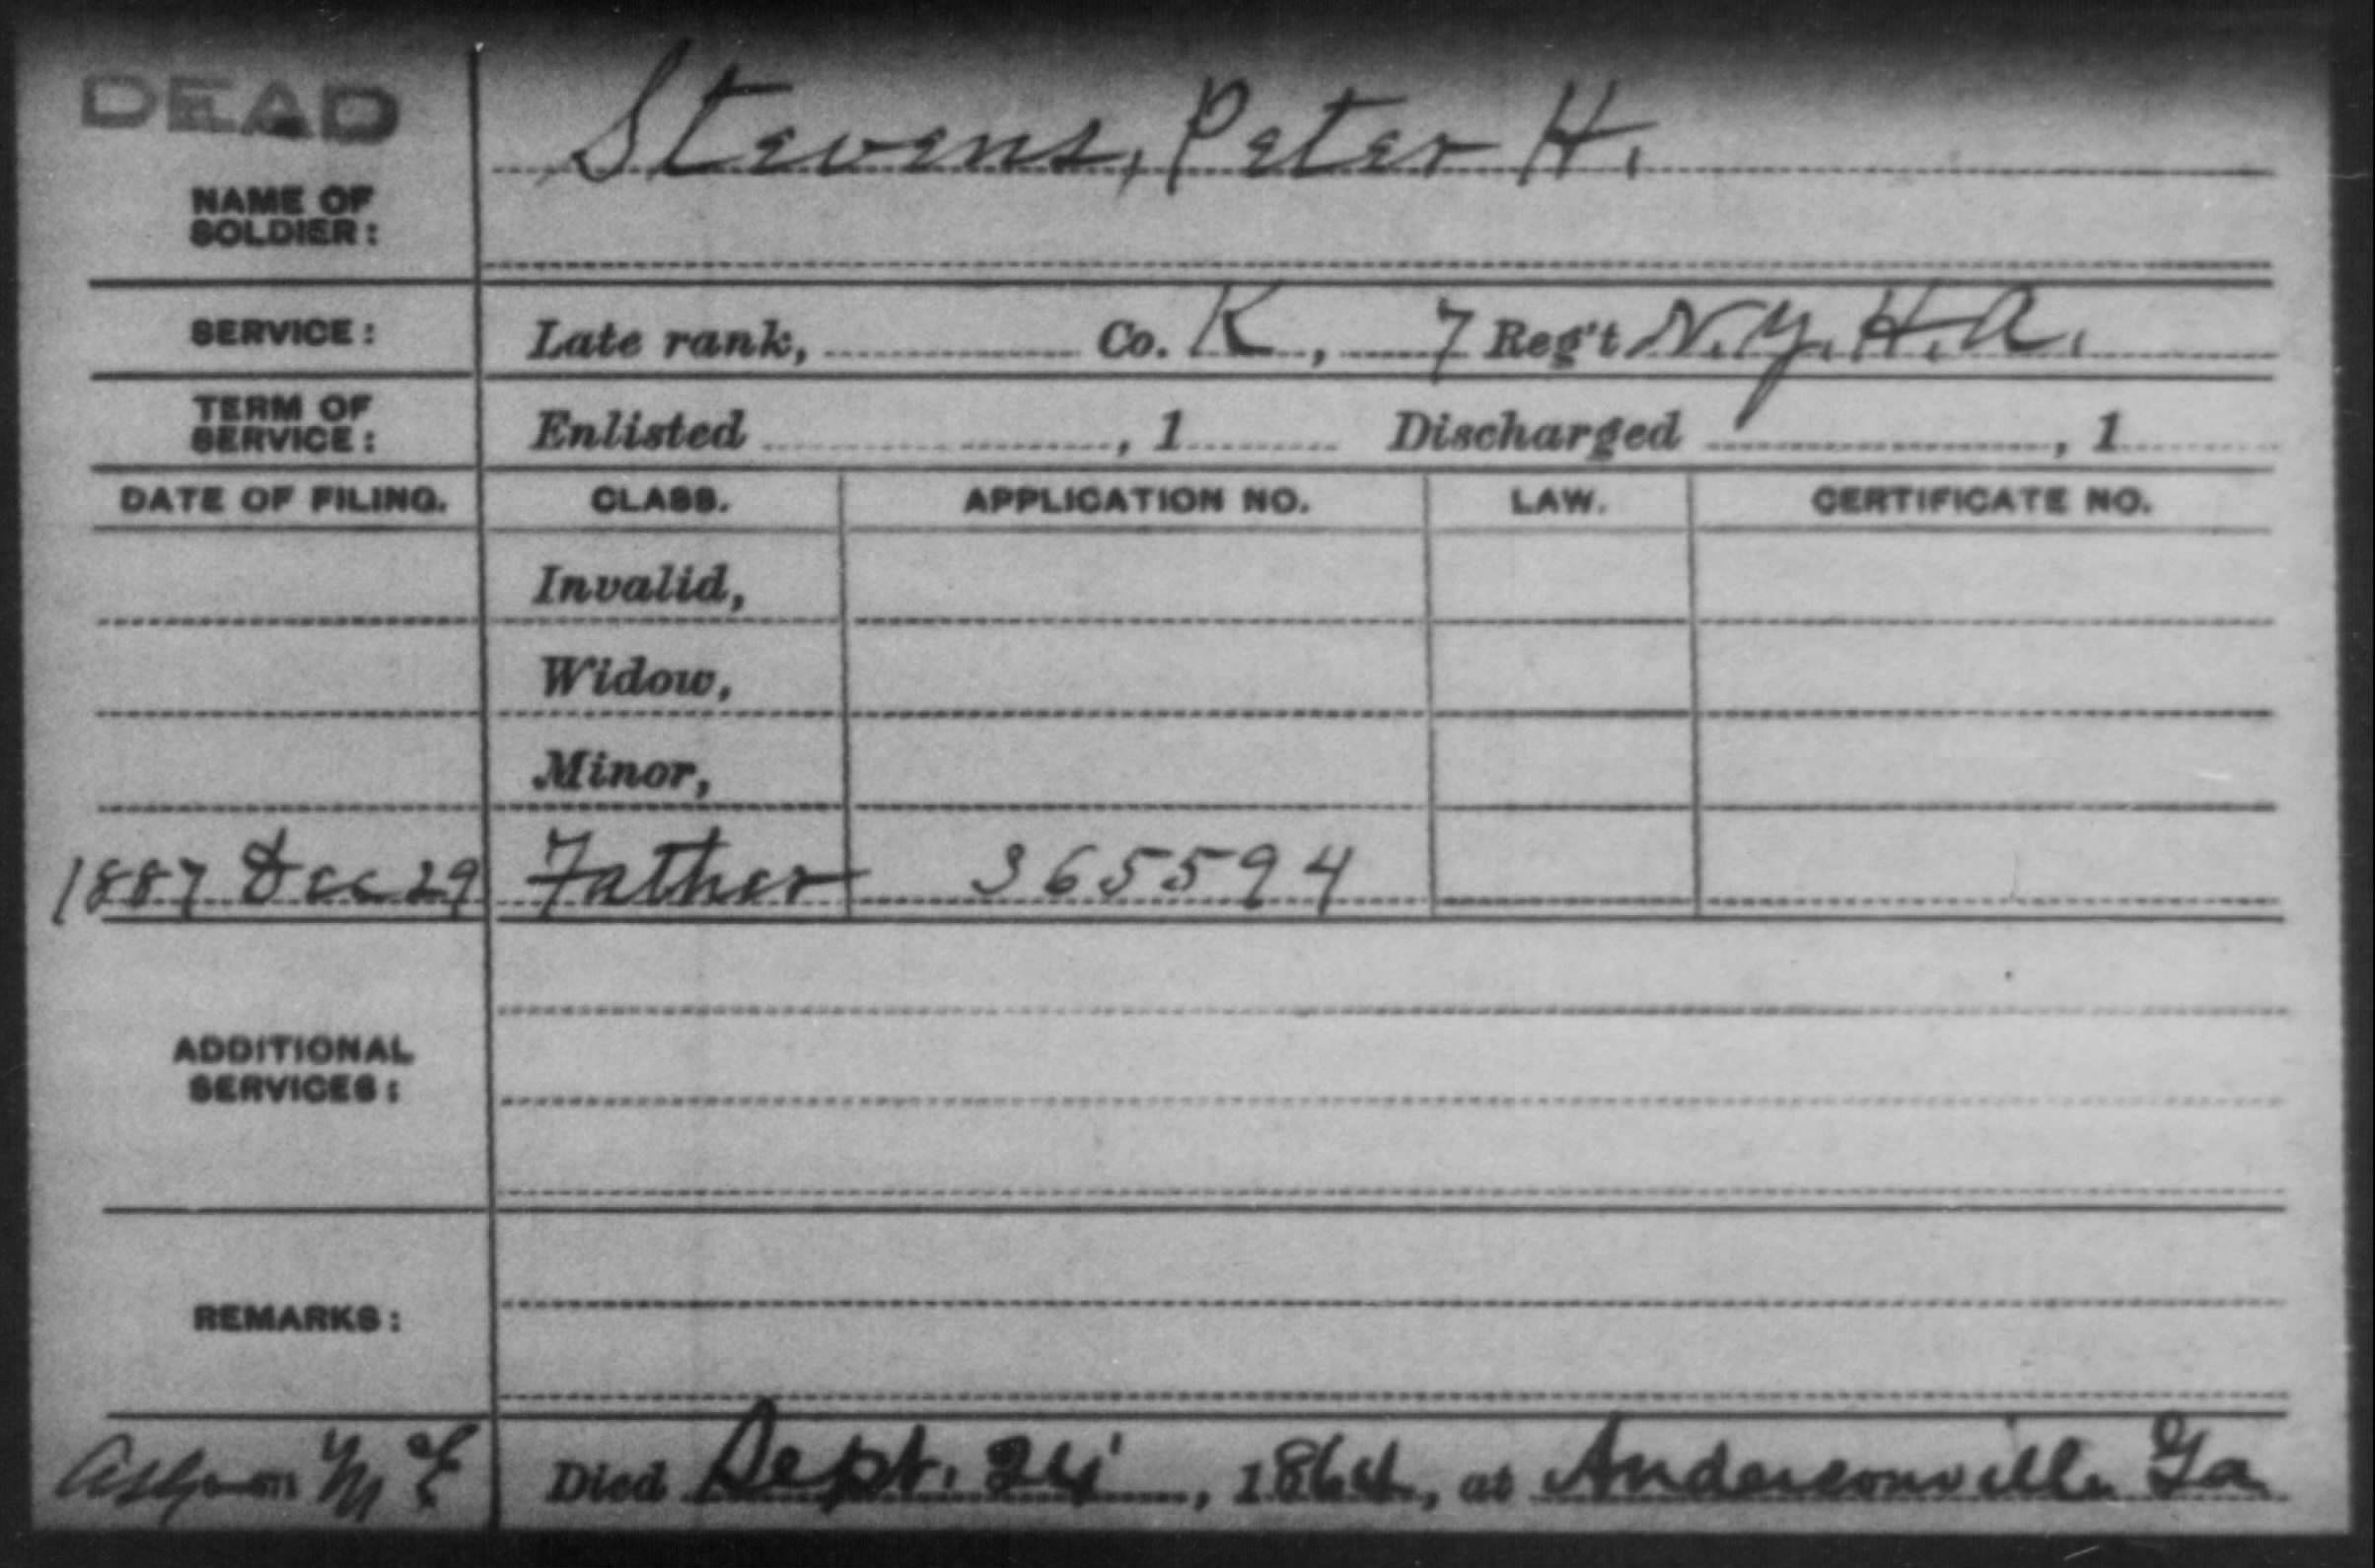 DEAD
Stevens, Peter H.
NAME OF
SOLDIER:
SERVICE: Late rank, Co. K, 7 Reg't N.Y.H.A.
TERM OF
SERVICE: Enlisted , 1 Discharged , 1
DATE OF FILING. CLASS. APPLICATION NO. LAW. CERTIFICATE NO.
Invalid,
Widow,
Minor,
1887 Dec 29 Father 365594
ADDITIONAL
SERVICES:
REMARKS:
Died Sept. 24, 1864, at Andersonville Ga